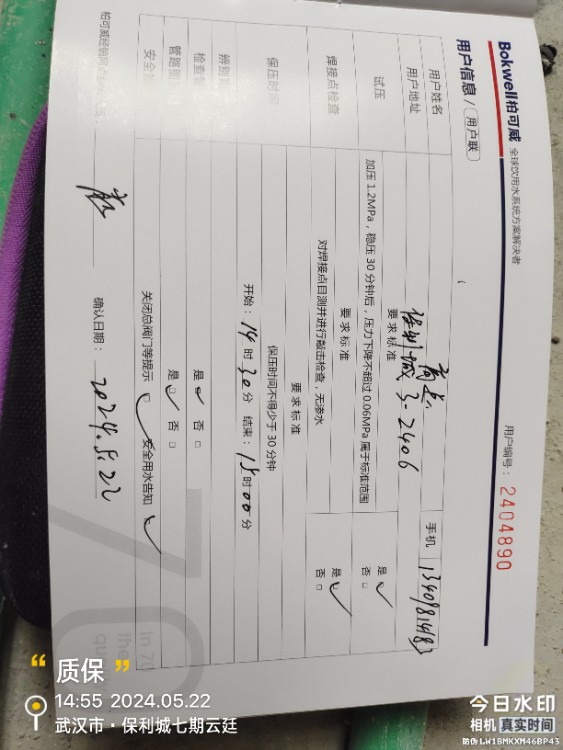 Bokwell柏可威 全球饮用水系统方案解决者
用户编号：2404890
用户信息 / 用户联
用户姓名
手机
用户地址 保利城 3-2406
试压
要求标准
加压 1.2MPa，稳压 30 分钟后，压力下降不超过 0.06MPa 属于标准范围
是 ✓
否 □
焊接点检查
要求标准
对焊接点目测并进行敲击检查，无渗水
是 ✓
否 □
保压时间
要求标准
保压时间不得少于 30 分钟
开始：14 时 30 分 结束：15 时 00 分
辨别
检查
是 ✓ 否 □
管路
是 ✓ 否 □
安全
关闭总阀门等提示 ✓ 安全用水告知 ✓
柏可威经销
确认日期：2024.5.22
in 70
the
que
“ 质保 ”
14:55 2024.05.22
武汉市·保利城七期云廷
今日水印
相机 真实时间
防伪 LW1BMKXM46BP43